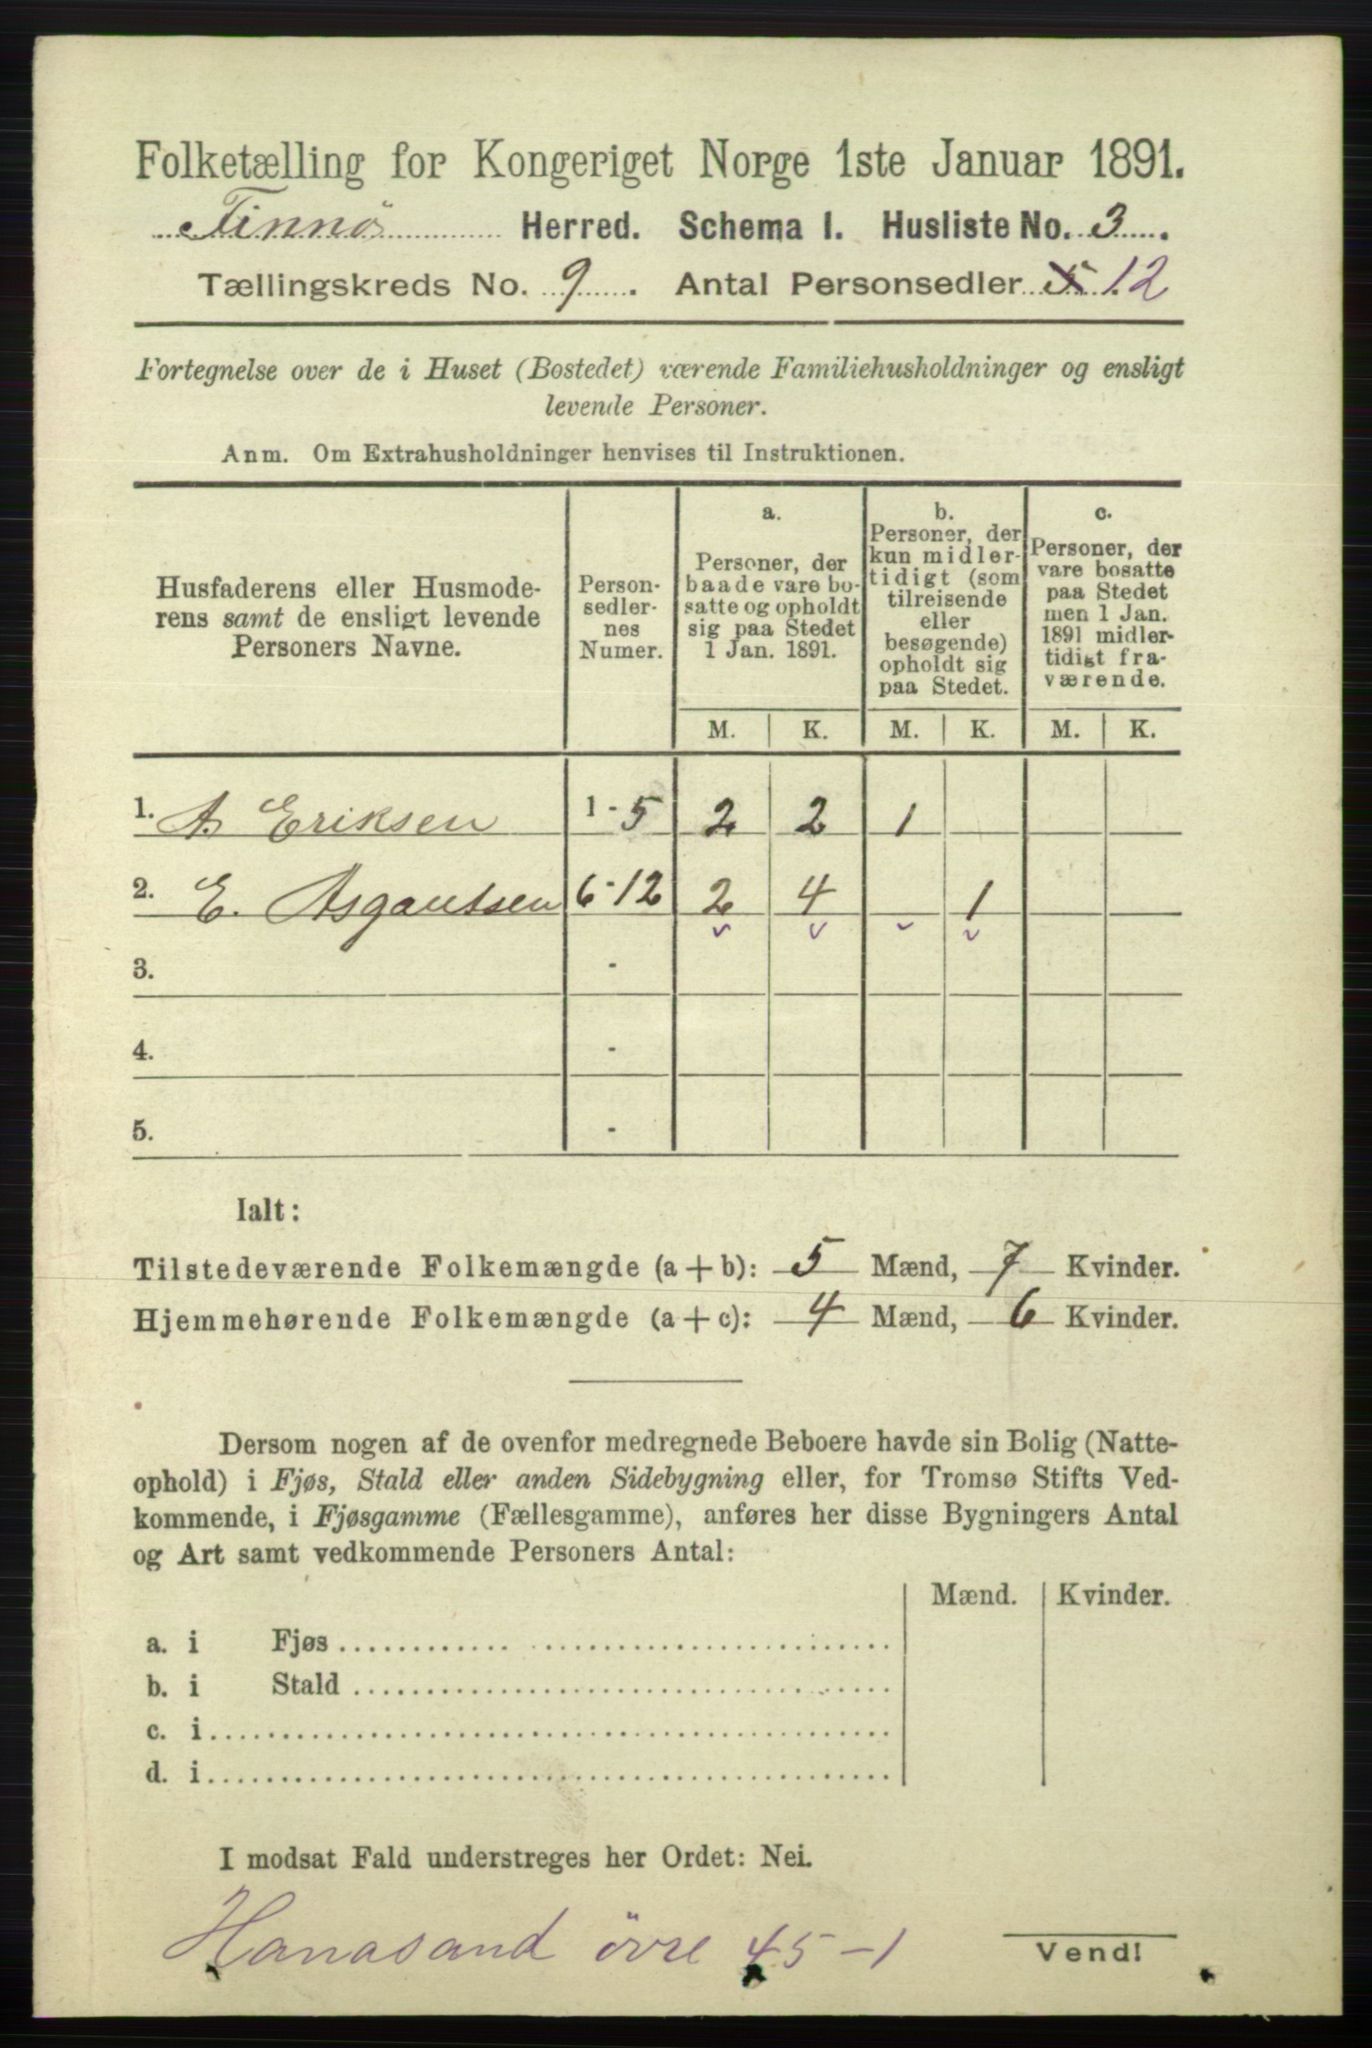 Folketælling for Kongeriget Norge 1ste Januar 1891.
Finnö Herred. Schema I. Husliste No. 3.
Tællingskreds No. 9. Antal Personsedler 5 12
Fortegnelse over de i Huset (Bostedet) værende Familiehusholdninger og ensligt
levende Personer.
Anm. Om Extrahusholdninger henvises til Instruktionen.
Husfaderens eller Husmode-
rens samt de ensligt levende
Personers Navne.
Person-
sedler-
nes
Numer.
a.
Personer, der
baade vare bo-
satte og opholdt
sig paa Stedet
1 Jan. 1891.
b.
Personer, der
kun midler-
tidigt (som
tilreisende
eller
besøgende)
opholdt sig
paa Stedet.
c.
Personer, der
vare bosatte
paa Stedet
men 1 Jan.
1891 midler-
tidigt fra-
værende.
M. K. M. K. M. K.
1. A Eriksen 1 - 5 2 2 1
2. E. Asgautsen 6 - 12 2 4 1
3. -
4. -
5. -
Ialt:
Tilstedeværende Folkemængde (a + b): 5 Mænd, 7 Kvinder.
Hjemmehørende Folkemængde (a + c): 4 Mænd, 6 Kvinder.
Dersom nogen af de ovenfor medregnede Beboere havde sin Bolig (Natte-
ophold) i Fjøs, Stald eller anden Sidebygning eller, for Tromsø Stifts Ved-
kommende, i Fjøsgamme (Fællesgamme), anføres her disse Bygningers Antal
og Art samt vedkommende Personers Antal:
Mænd. Kvinder.
a. i Fjøs
b. i Stald
c. i
d. i
I modsat Fald understreges her Ordet: Nei.
Hanasand övre 45-1
Vend!